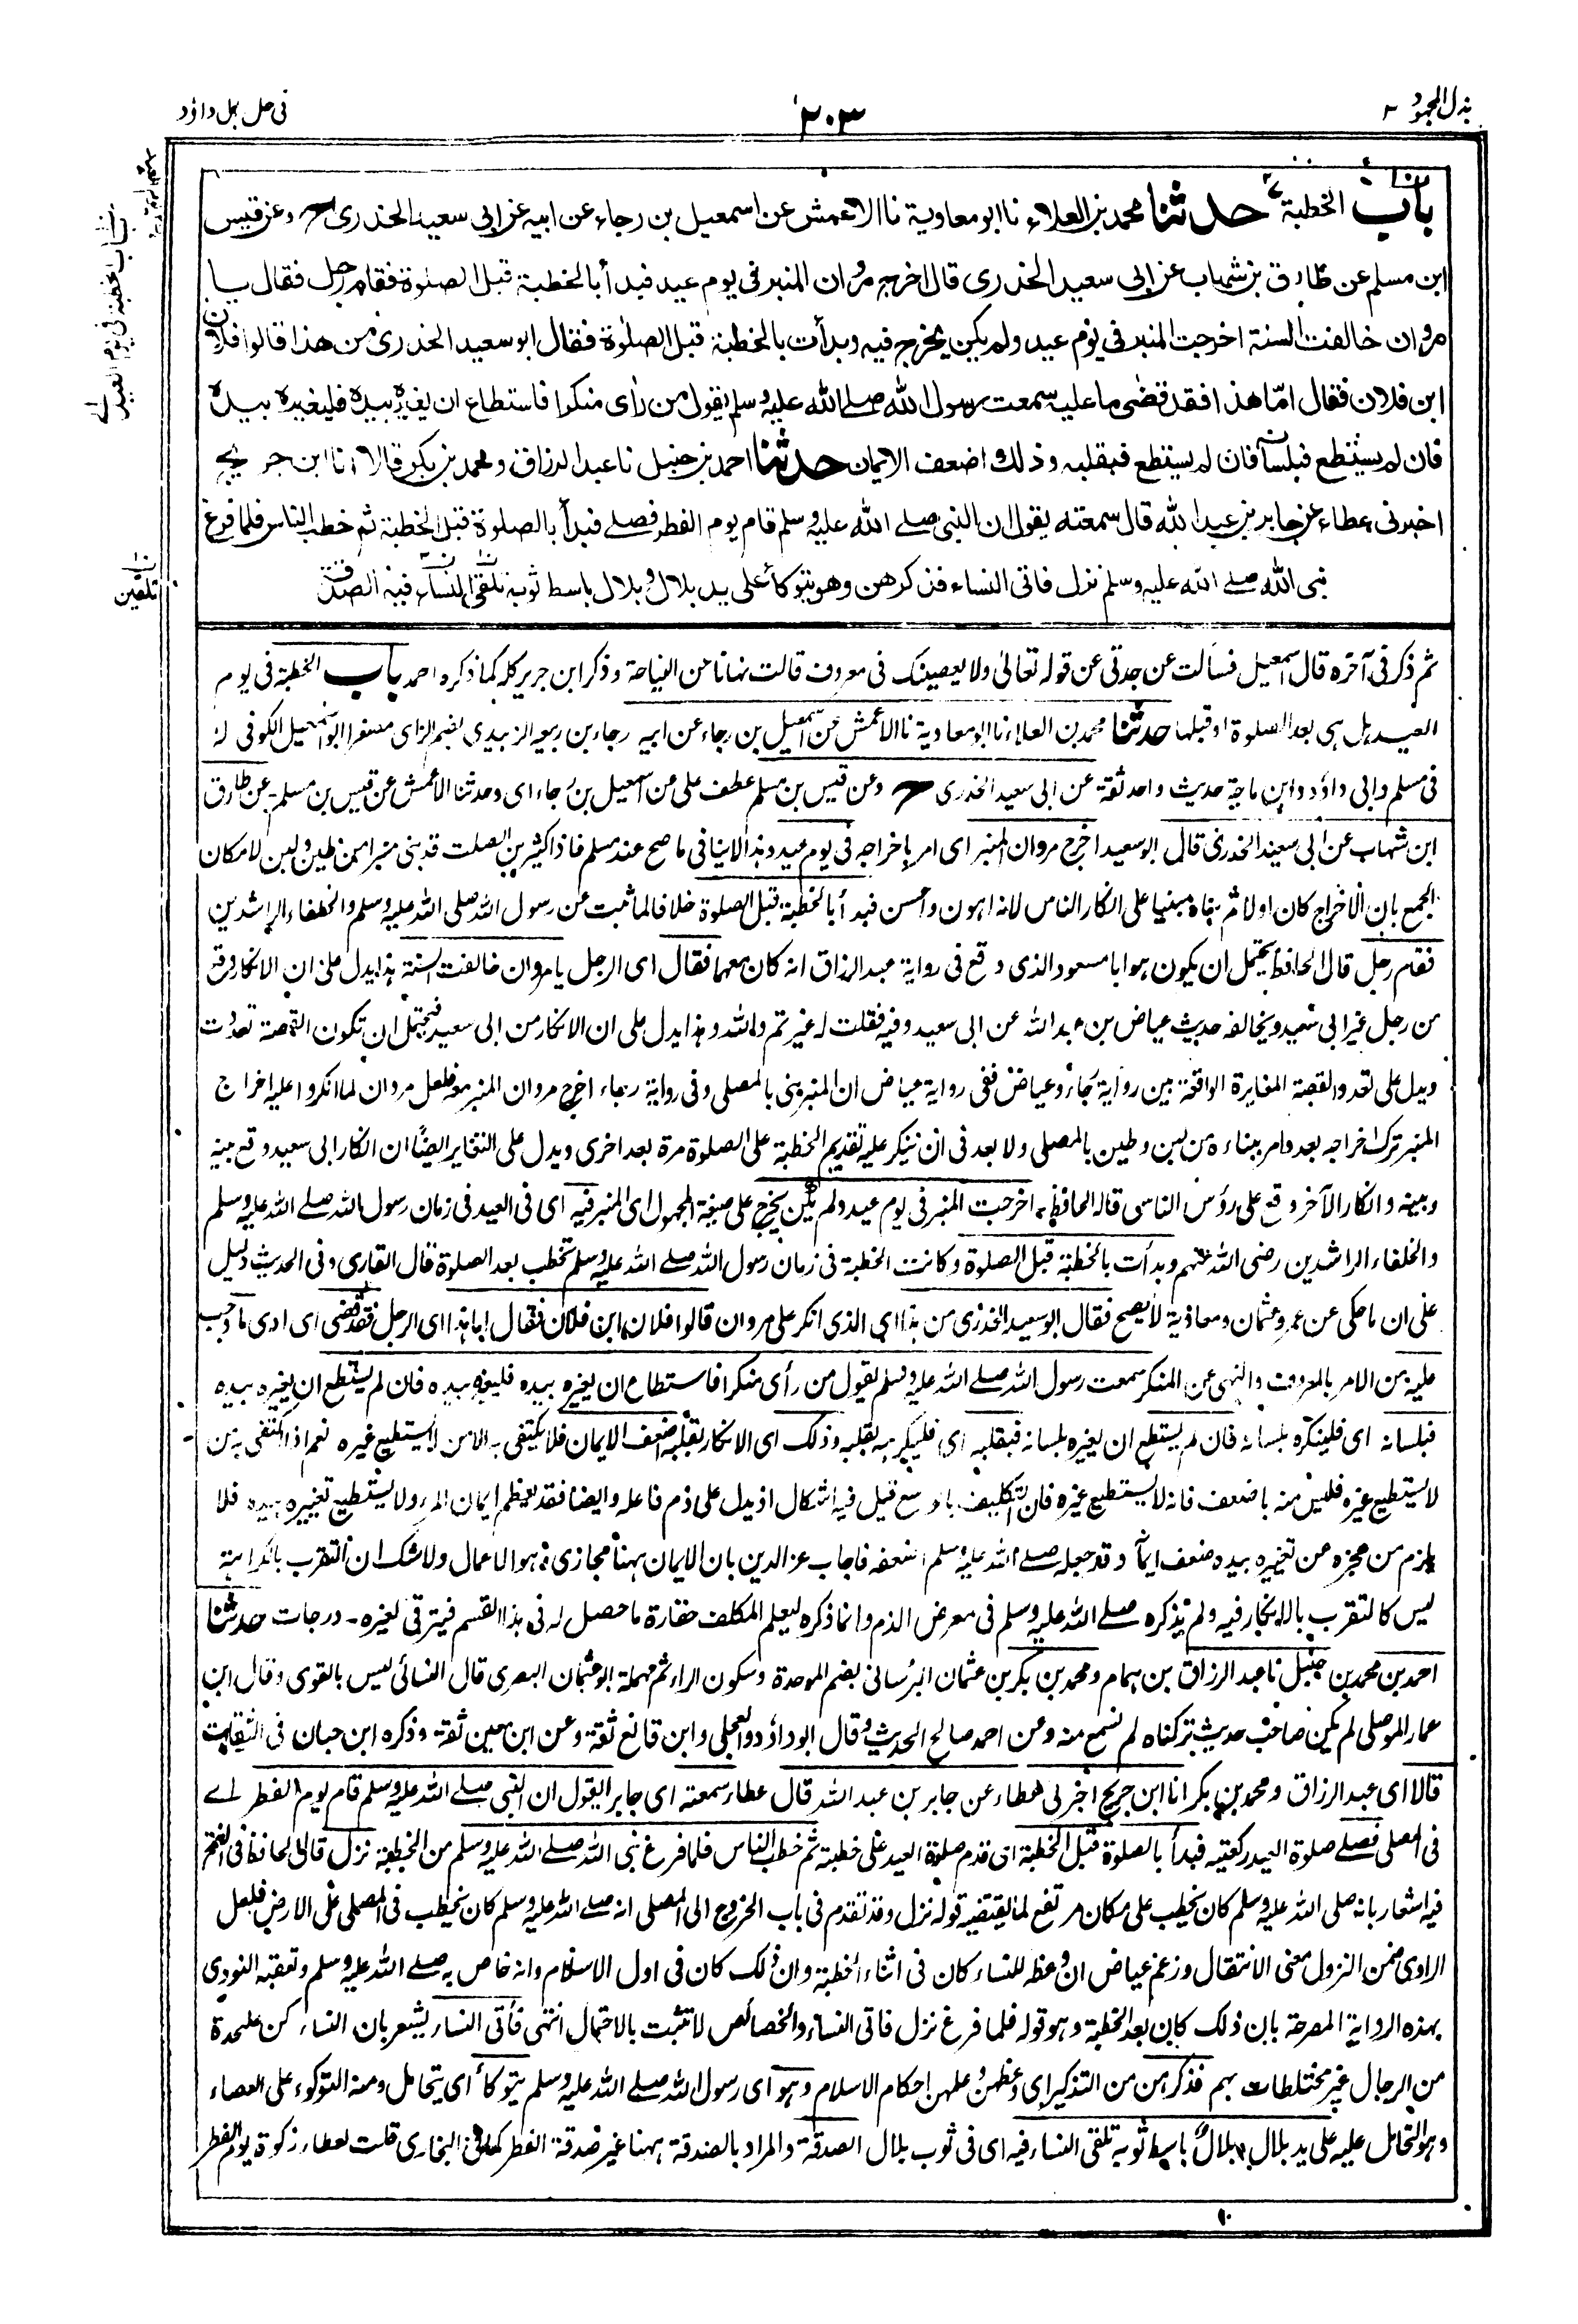 بذل المجهود ٢
٢٠٣
فى حل ابى داؤد
باب الخطبة حدثنا محمد بن العلاء نا ابو معاوية نا الاعمش عن اسمعيل بن رجاء عن ابيه عن ابى سعيد الخدرى ح وعن قيس
ابن مسلم عن طارق بن شهاب عن ابى سعيد الخدرى قال اخرج مروان المنبر فى يوم عيد فبدأ بالخطبة قبل الصلوة فقام رجل فقال يا
مروان خالفت السنة اخرجت المنبر فى يوم عيد ولم يكن يخرج فيه وبدأت بالخطبة قبل الصلوة فقال ابو سعيد الخدرى من هذا قالوا فلان
ابن فلان فقال امّا هذا فقد قضى ما عليه سمعت رسول الله صلے الله عليه وسلم يقول من رأى منكرا فاستطاع ان يغيره بيده فليغيره بيده
فان لم يستطع فبلسانه فان لم يستطع فبقلبه وذلك اضعف الايمان حدثنا احمد بن حنبل نا عبد الرزاق ومحمد بن بكر قالا انا ابن جريج
اخبرنى عطاء عن جابر بن عبد الله قال سمعته يقول ان النبى صلے الله عليه وسلم قام يوم الفطر فصلے فبدأ بالصلوة قبل الخطبة ثم خطب الناس فلما فرغ
نبى الله صلے الله عليه وسلم نزل فاتى النساء فذكرهن وهو يتوكأ على يد بلال وبلال باسط ثوبه تلقى النساء فيه الصدقة
باب الخطبة فى يوم العيد
تلقين
ثم ذكر فى آخره قال اسمعيل فسألت عن جدتى عن قوله تعالى ولا يعصينك فى معروف قالت نهانا عن النياحة وذكر ابن جرير كله كما ذكره احمد باب الخطبة فى يوم
العيد هل هى بعد الصلوة او قبلها حدثنا محمد بن العلاء نا ابو معاوية نا الاعمش عن اسمعيل بن رجاء عن ابيه رجاء بن ربيعة الزبيدى بضم الزاى مصغرا ابو اسمعيل الكوفى له
فى مسلم وابى داؤد وابن ماجة حديث واحد ثقة عن ابى سعيد الخدرى ح وعن قيس بن مسلم عطف على عن اسمعيل بن رجاء اى وحدثنا الاعمش عن قيس بن مسلم عن طارق
ابن شهاب عن ابى سعيد الخدرى قال ابو سعيد اخرج مروان المنبر اى امر باخراجه فى يوم عيد وهذا لا ينافى ما صح عند مسلم فاذا كثير بن الصلت قد بنى منبرا من طين ولبن لامكان
الجمع بان الاخراج كان اولا ثم بناه مبنيا على انكار الناس لانه اهون واحسن فبدأ بالخطبة قبل الصلوة خلافا لما ثبت عن رسول الله صلى الله عليه وسلم والخلفاء الراشدين
فقام رجل قال الحافظ يحتمل ان يكون هو ابا مسعود الذى وقع فى رواية عبد الرزاق انه كان معهما فقال اى الرجل يا مروان خالفت السنة هذا يدل على ان الانكار وقع
من رجل غير ابى سعيد ويخالفه حديث عياض بن عبد الله عن ابى سعيد وفيه فقلت له غيرتم والله وهذا يدل على ان الانكار من ابى سعيد فيحتمل ان تكون القصة تعددت
ويدل على تعدد القصة المغايرة الواقعة بين رواية رجاء وعياض ففى رواية عياض ان المنبر بنى بالمصلى وفى رواية رجاء اخرج مروان المنبر معه فلعل مروان لما انكروا عليه اخراج
المنبر ترك اخراجه بعد وامر ببناءه من لبن وطين بالمصلى ولا بعد فى ان ينكر عليه تقديم الخطبة على الصلوة مرة بعد اخرى ويدل على التغاير ايضا ان انكار ابى سعيد وقع بينه
وبينه وانكار الآخر وقع على رؤس الناس قاله الحافظ اخرجت المنبر فى يوم عيد ولم يكن يخرج على صيغة المجهول اى المنبر فيه اى فى العيد فى زمان رسول الله صلے الله عليه وسلم
والخلفاء الراشدين رضى الله عنهم وبدأت بالخطبة قبل الصلوة وكانت الخطبة فى زمان رسول الله صلے الله عليه وسلم تخطب بعد الصلوة قال القارى وفى الحديث دليل
على ان ما حكى عن عمر وعثمان ومعاذية لا يصح فقال ابو سعيد الخدرى من هذا اى الذى انكر على مروان قالوا فلان ابن فلان فقال اما هذا اى الرجل فقد قضى اى ادى ما وجب
عليه من الامر بالمعروف والنهى عن المنكر سمعت رسول الله صلے الله عليه وسلم يقول من رأى منكرا فاستطاع ان يغيره بيده فليغيره بيده فان لم يستطع ان يغيره بيده
فبلسانه اى فلينكره بلسانه فان لم يستطع ان يغيره بلسانه فبقلبه اى فلينكر به بقلبه وذلك اى الانكار بقلبه اضعف الايمان فلا يكتفى به الا من لا يستطيع غيره نعم اذا اكتفى به من
لا يستطيع غيره فليس منه باضعف فانه لا يستطيع غيره فان التكليف بالوسع قيل فيه اشكال اذ يدل على ذم فاعله وايضا فقد يعظم ايمان المرء ولا يستطيع تغييره بيده فلا
يلزم من عجزه عن تغييره بيده ضعف ايمانه وقد جعله صلے الله عليه وسلم اضعفه فاجاب عز الدين بان الايمان ههنا مجازى هو الاعمال ولا شك ان التقرب بالكراهة
ليس كالتقرب بالانكار فيه ولم يذكره صلے الله عليه وسلم فى معرض الذم وانما ذكره ليعلم المكلف حقارة ما حصل له فى هذا القسم فيترقى لغيره - درجات حدثنا
احمد بن محمد بن حنبل نا عبد الرزاق بن همام ومحمد بن بكر بن عثمان البرسانى بضم الموحدة وسكون الراء ثم مهملة ابو عثمان البصرى قال النسائى ليس بالقوى وقال ابن
عمار الموصلى لم يكن صاحب حديث تركناه لم نسمع منه وعن احمد صالح الحديث وقال ابو داؤد والعجلى وابن قانع ثقة وعن ابن معين ثقة وذكره ابن حبان فى الثقات
قالا اى عبد الرزاق ومحمد بن بكر انا ابن جريج اخبرنى عطاء عن جابر بن عبد الله قال عطاء سمعته اى جابرا يقول ان النبى صلے الله عليه وسلم قام يوم الفطر اے
فى المصلى فصلے صلوة العيد ركعتيه فبدأ بالصلوة قبل الخطبة اى قدم صلوة العيد على خطبة ثم خطب الناس فلما فرغ نبى الله صلے الله عليه وسلم من الخطبة نزل قال الحافظ فى الفتح
فيه اشعار بانه صلى الله عليه وسلم كان يخطب على مكان مرتفع لما يقتضيه قوله نزل وقد تقدم فى باب الخروج الى المصلى انه صلے الله عليه وسلم كان يخطب فى المصلى على الارض فلعل
الراوى ضمن النزول معنى الانتقال وزعم عياض ان وعظه للنساء كان فى اثناء الخطبة وان ذلك كان فى اول الاسلام وانه خاص به صلے الله عليه وسلم وتعقبه النووى
بهذه الرواية المصرحة بان ذلك كان بعد الخطبة وهو قوله فلما فرغ نزل فاتى النساء والخصائص لا تثبت بالاحتمال انتهى فأتى النساء يشعر بان النساء كن علحدة
من الرجال غير مختلطات بهم فذكرهن من التذكير اى وعظهن وعلمهن احكام الاسلام وهو اى رسول الله صلے الله عليه وسلم يتوكأ اى يتحامل ومنه التوكؤ على العصاء
وهو التحامل عليه على يد بلال وبلال باسط ثوبه تلقى النساء فيه اى فى ثوب بلال الصدقة والمراد بالصدقة ههنا غير صدقة الفطر كما فى البخارى قلت لعطاء زكوة يوم الفطر